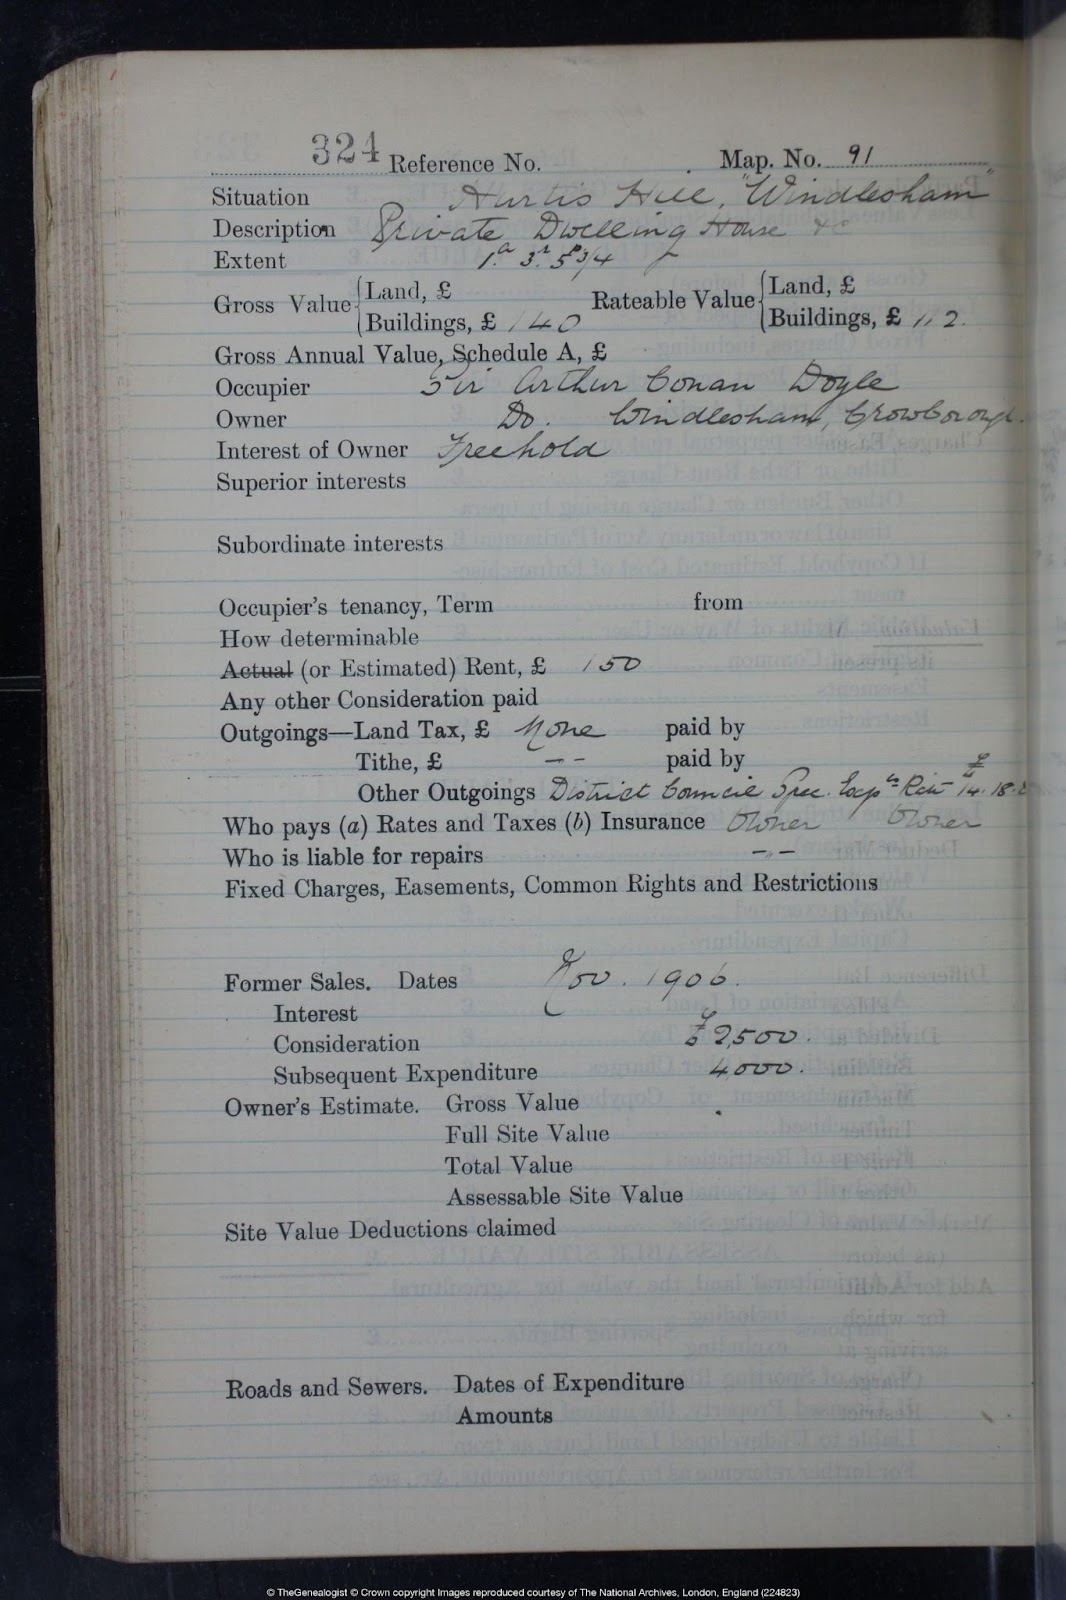 324 Reference No. Map. No. 91
Situation Hurtis Hill, "Windlesham"
Description Private Dwelling House &c
Extent 1.a 3.r 5p3/4
Gross Value Land, £ Rateable Value Land, £
Buildings, £ 140 Buildings, £ 112.
Gross Annual Value, Schedule A, £
Occupier Sir Arthur Conan Doyle
Owner Do. Windlesham, Crowborough.
Interest of Owner Freehold
Superior interests
Subordinate interests
Occupier's tenancy, Term from
How determinable
Actual (or Estimated) Rent, £ 150
Any other Consideration paid
Outgoings—Land Tax, £ None paid by
Tithe, £ -- paid by
Other Outgoings District Council Spec. Exps Rate £14.18.
Who pays (a) Rates and Taxes (b) Insurance Owner Owner
Who is liable for repairs -"-
Fixed Charges, Easements, Common Rights and Restrictions
Former Sales. Dates Nov. 1906.
Interest
Consideration £2,500.
Subsequent Expenditure 4,000.
Owner's Estimate. Gross Value
Full Site Value
Total Value
Assessable Site Value
Site Value Deductions claimed
Roads and Sewers. Dates of Expenditure
Amounts
© TheGenealogist © Crown copyright Images reproduced courtesy of The National Archives, London, England (224823)